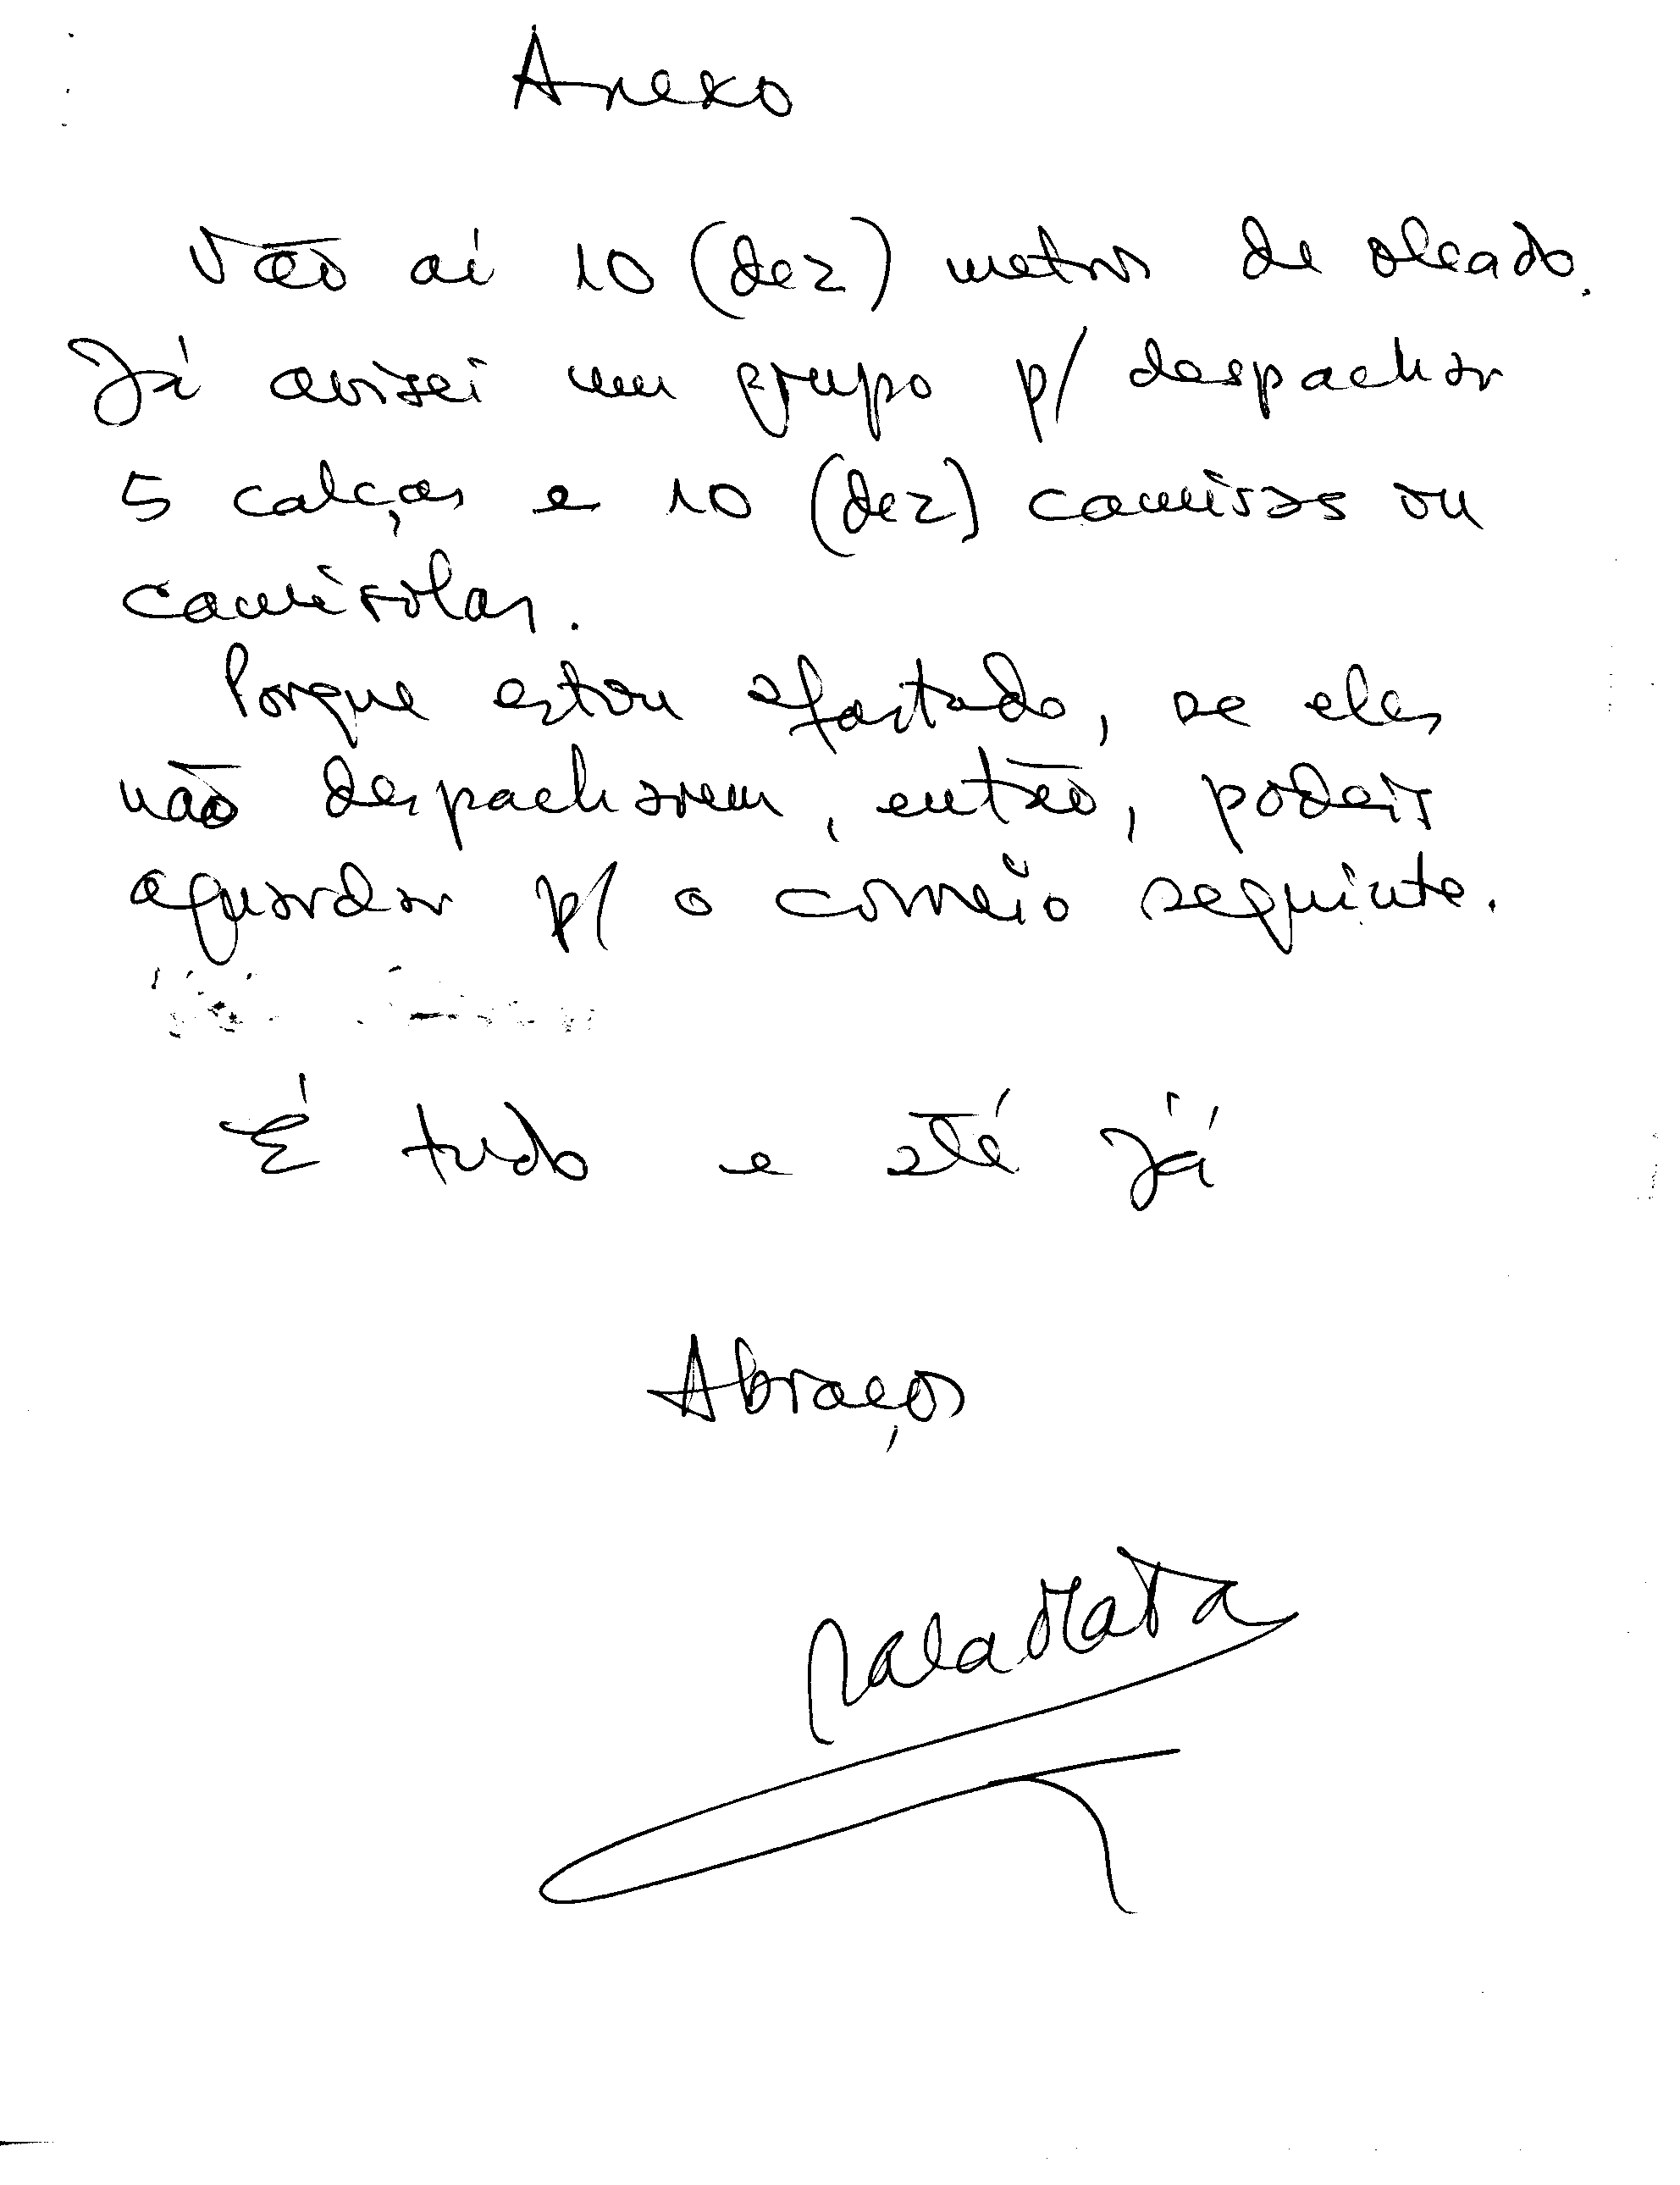 Anexo
Vão aí 10 (dez) metros de oleado.
Já avisei um grupo p/ despachar
5 calças e 10 (dez) camisas ou
camisolas.
Porque estou afastado, se eles
não despacharem, então, podeis
aguardar p/ o correio seguinte.
É tudo e até já
Abraços